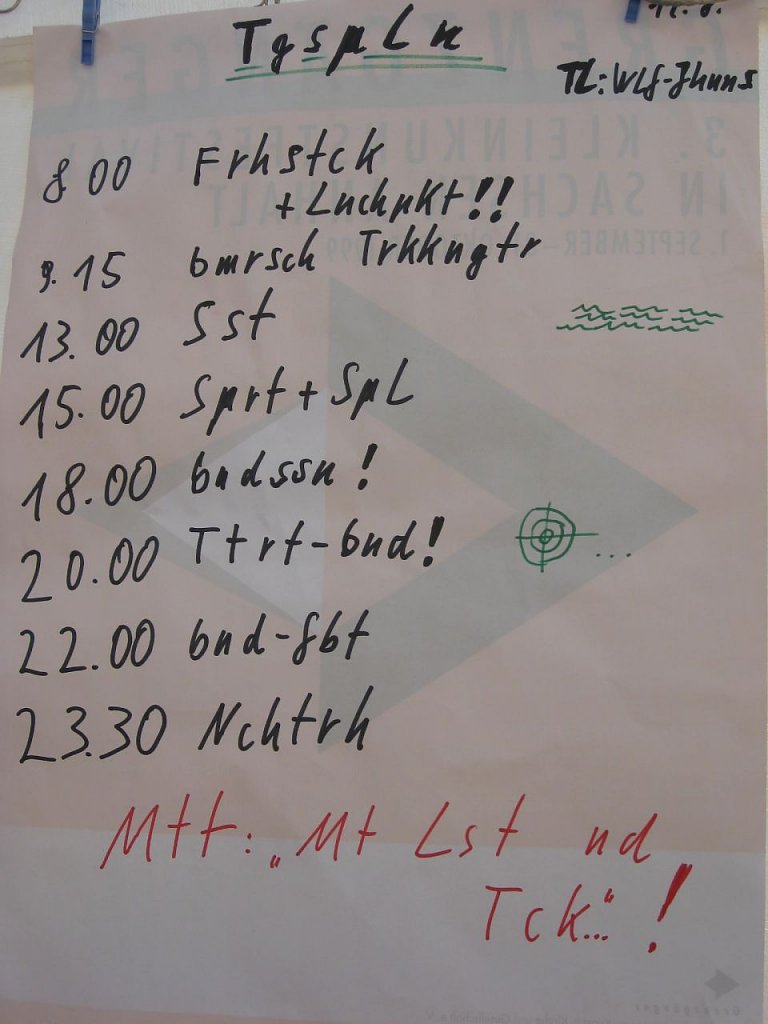 TgspLn
TL: WLf-Jhnns
8 00 Frhstck
+ Lnchpkt!!
9.15 bmrsch Trkkngtr
13.00 Sst
15.00 Sprt + SpL
18.00 bndssn!
20.00 Ttrt-bnd!
22.00 bnd-gbt
23.30 Nchtrh
Mtt: „Mt Lst nd
Tck..." !
3. KLEINKUNSTFESTIVAL
IN SACHSEN-ANHALT